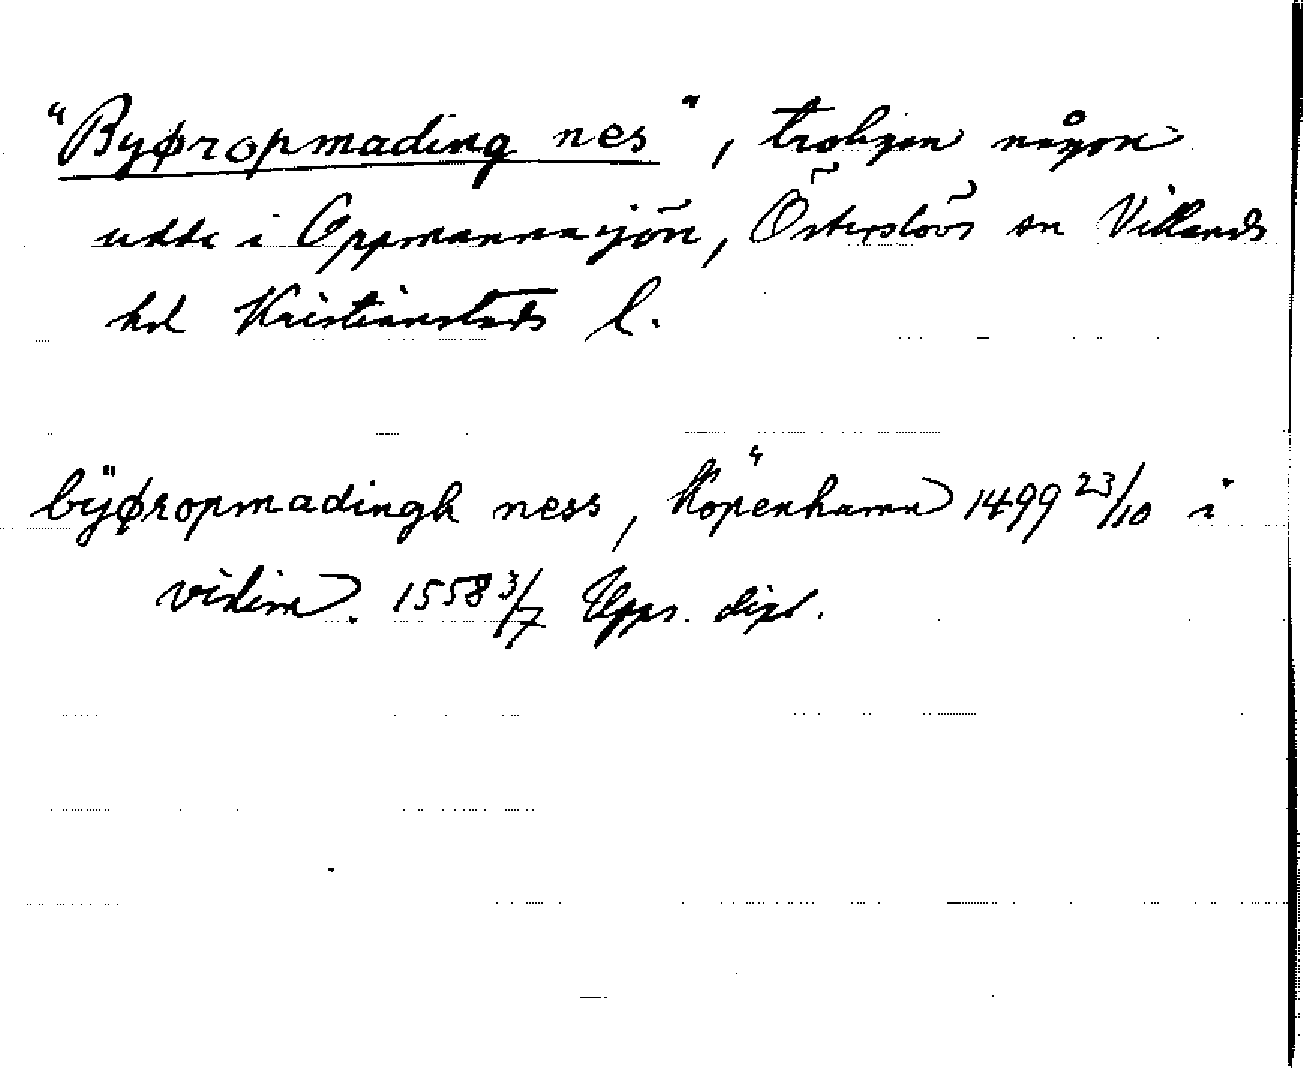 "Byøropmading nes", troligen någon
udde i Oppmannasjön, Österslövs sn Villands
hd Kristianstads l.
bÿøropmadingh ness, Köpenhamn 1499 23/10 i
vidim. 1558 3/7 Upps. dipl.